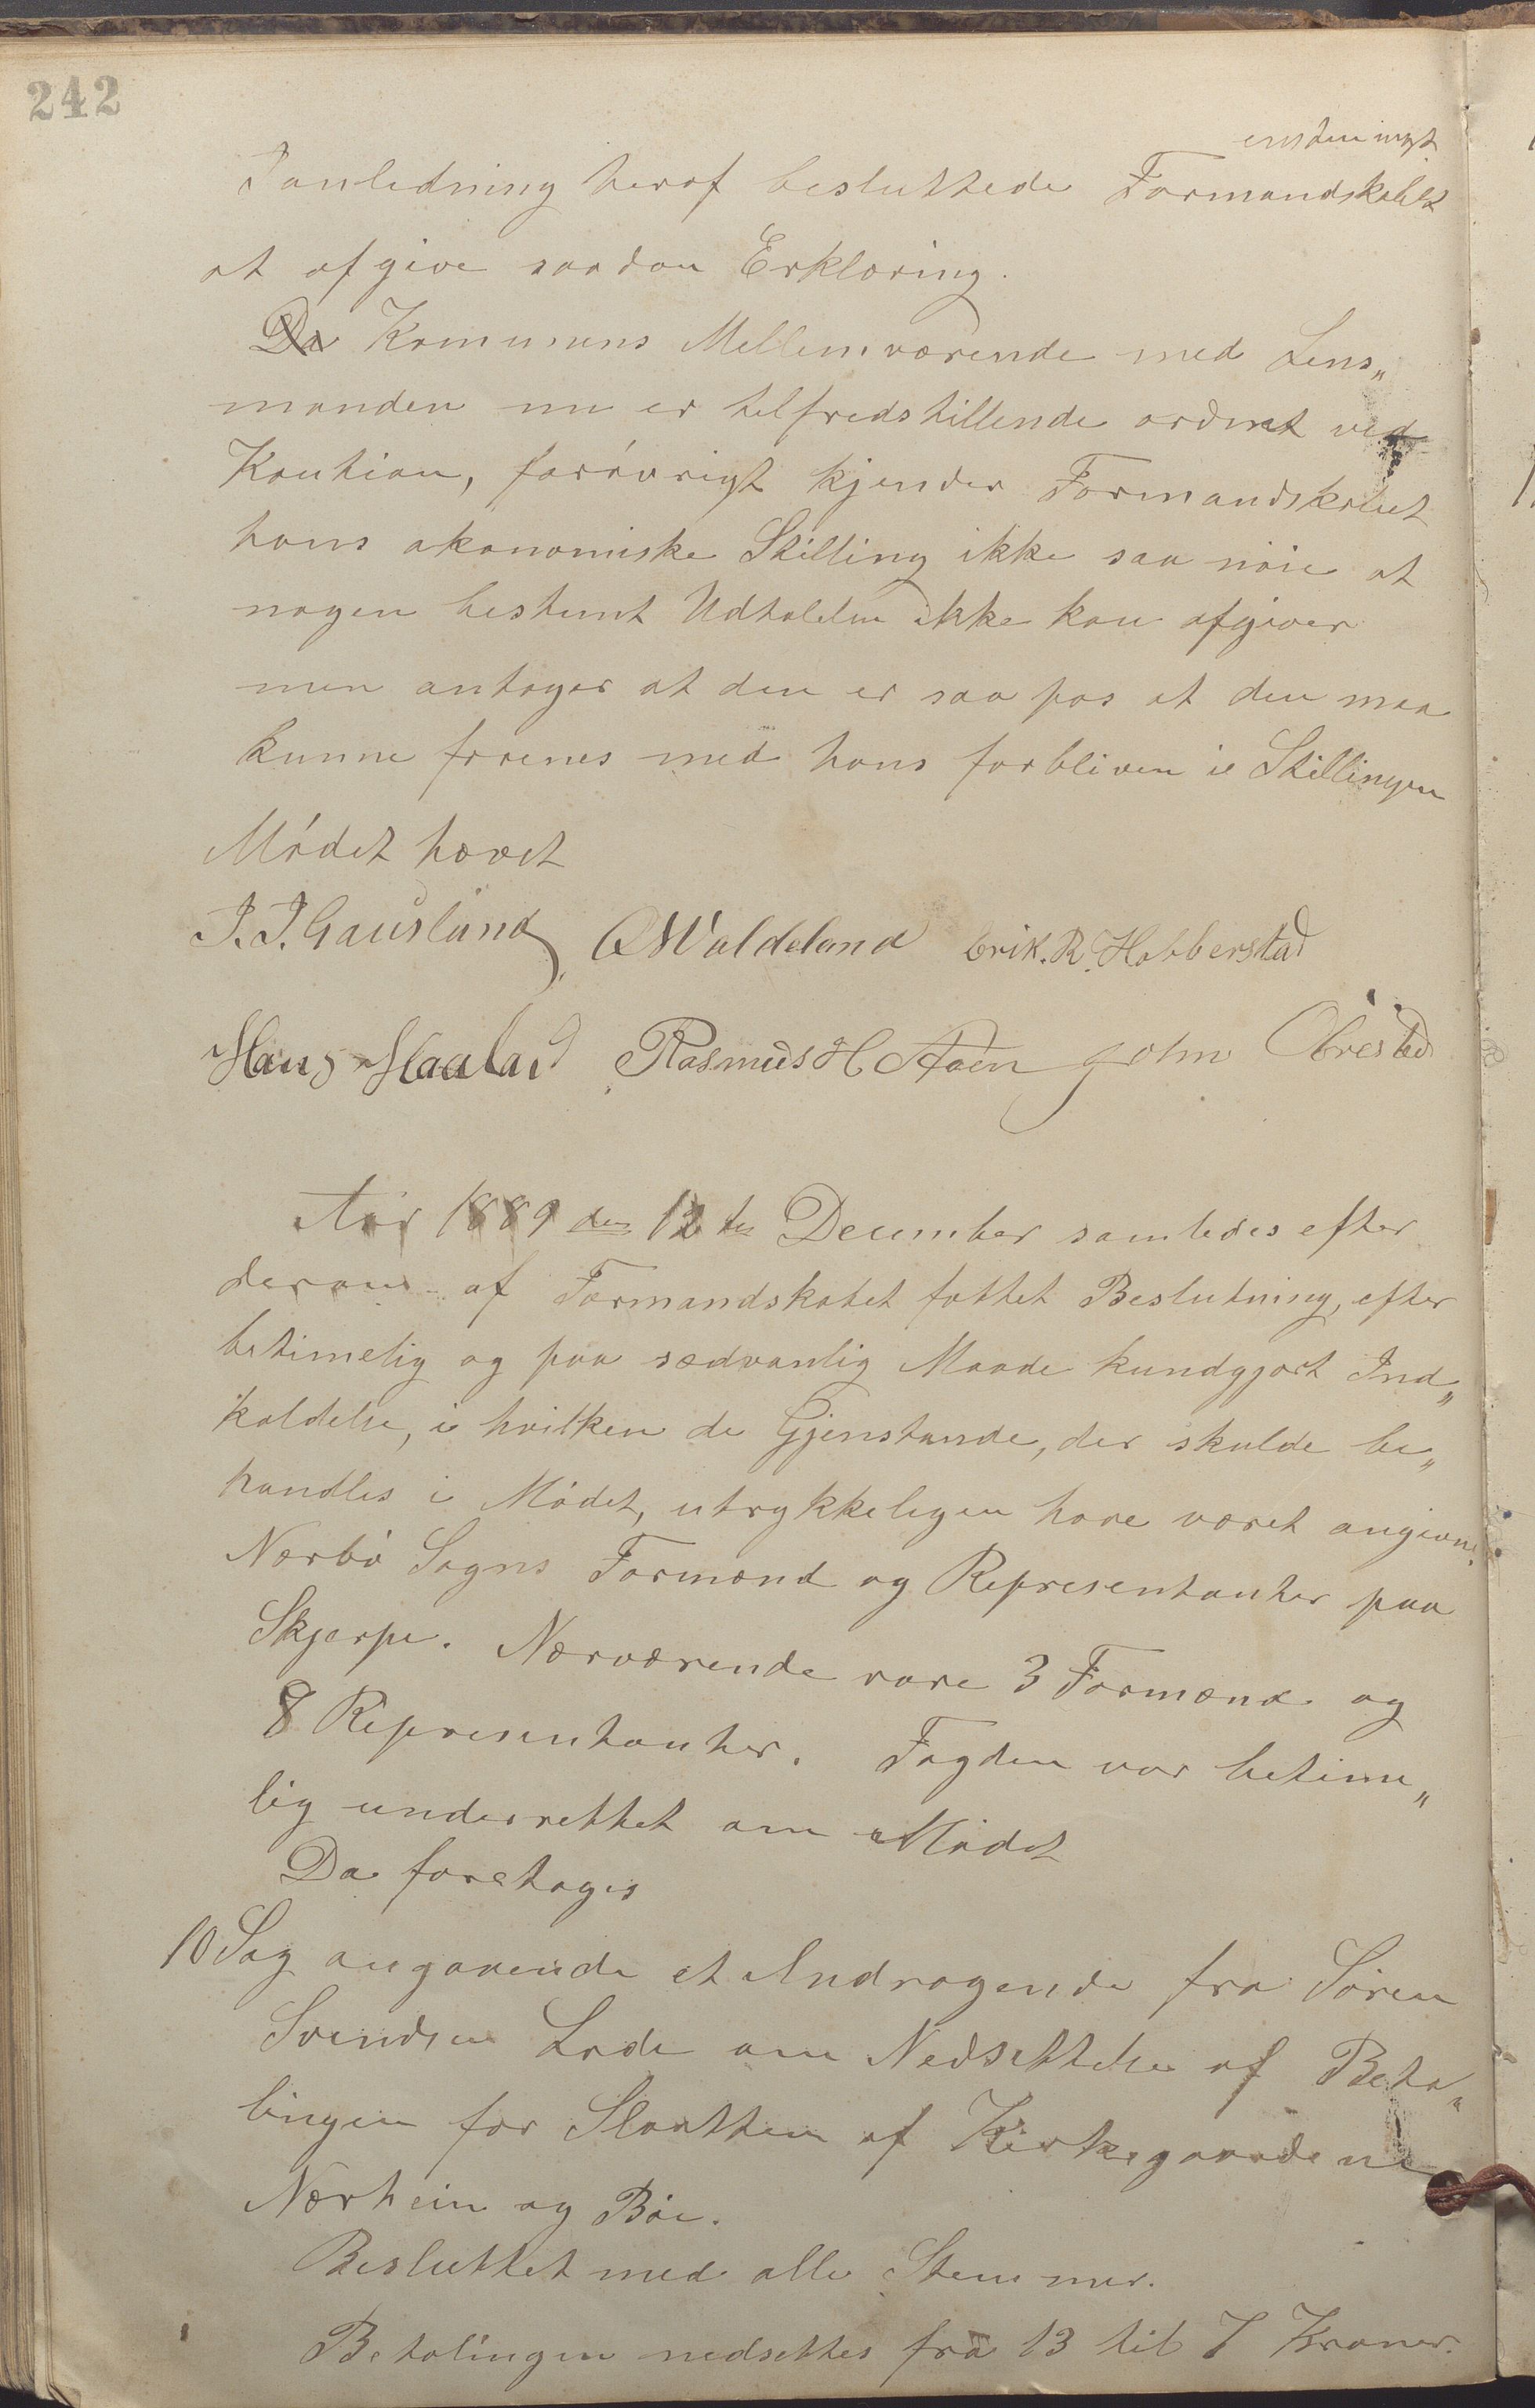 242
enstemmigt
I anledning heraf besluttede Formandskabet
at afgive saadan Erklæring.
Da Komunens Mellemværende med Lens„
manden nu er tilfredstillende ordnet ved
Kaution, forøvrigt kjender Formandskabet
hans økonomiske Stilling ikke saa nøie at
nogen bestemt Udtalelse ikke kan afgives
men antager at den er saa pas at den maa
kunne forenes med hans forbliven i Stillingen
Mødet hævet
J. J. Gausland, O Waldeland Erik. R. Hobberstad
Hans Haaland Rasmus H John Obrestad
Aar 1889 den 12te December samledes efter
derom af Formandskabet fattet Beslutning, efter
betimelig og paa sædvanlig Maade kundgjort Ind„
kaldelse, i hvilken de Gjenstande, der skulde be„
handles i Mødet, utrykkeligen have været angivne,
Nærbø Sogns Formænd og Representanter paa
Skjerpe. Nærværende vare 3 Formænd og
8 Representanter. Fogden var betime„
lig underrettet om Mødet
Da foretoges
10 Sag angaaende et Andragende fra Søren
Svendsen Lode om Nedsættelse af Beta„
lingen for Slaatten af Kirkegaardene
Nærheim og Bøe.
Besluttet med alle Stemmer.
Betalingen nedsettes fra 13 til 7 Kroner.